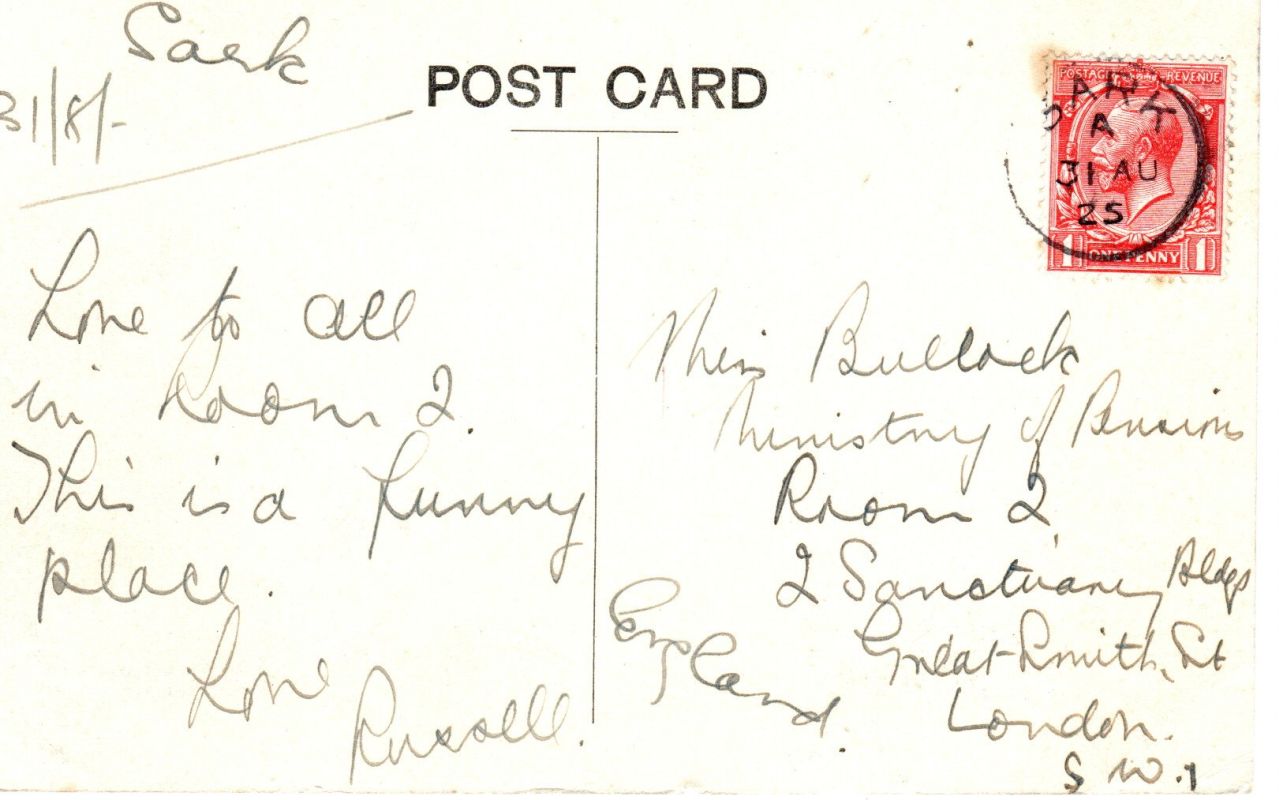 Sark
31/8/-
POST CARD
POSTAGE REVENUE
SARK
A
31 AU
25
1 ONE PENNY 1
Love to all
in Room 2.
This is a funny
place.
Love
Russell.
Miss Bullock
Ministry of Pensions
Room 2
2 Sanctuary Bldgs
Great Smith St
London.
S W.1
England.